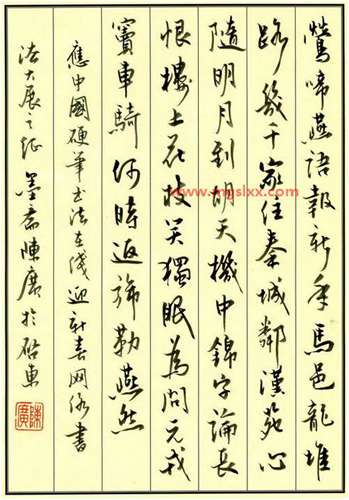 鶯啼燕語報新年馬邑龍堆
路幾千家住秦城鄰漢苑心
隨明月到胡天機中錦字論長
恨樓上花枝笑獨眠為問元戎
竇車騎何時返旆勒燕然
應中國硬筆书法在线迎新春网络書
法大展之征 墨斋陳廣於启東
陳廣
www.mgslxx.com